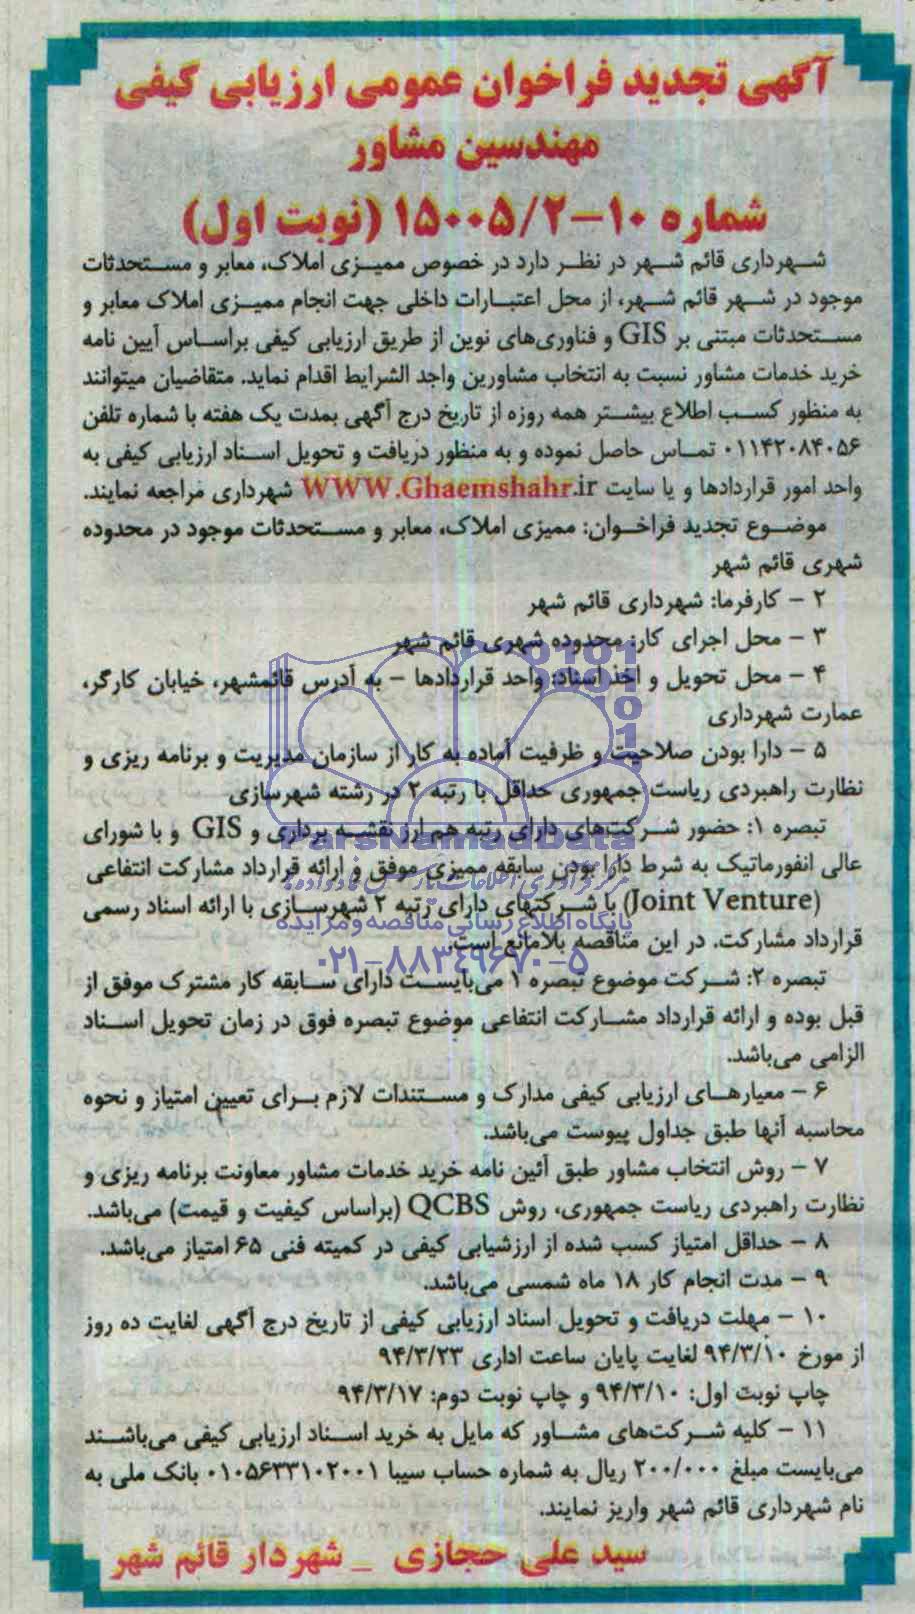 آگهی تجدید فراخوان عمومی ارزیابی کیفی
مهندسین مشاور
شماره ۱۰-۱۵۰۰۵/۲ (نوبت اول)
شهرداری قائم شهر در نظر دارد در خصوص ممیزی املاک، معابر و مستحدثات
موجود در شهر قائم شهر، از محل اعتبارات داخلی جهت انجام ممیزی املاک معابر و
مستحدثات مبتنی بر GIS و فناوری‌های نوین از طریق ارزیابی کیفی براساس آیین نامه
خرید خدمات مشاور نسبت به انتخاب مشاورین واجد الشرایط اقدام نماید. متقاضیان میتوانند
به منظور کسب اطلاع بیشتر همه روزه از تاریخ درج آگهی بمدت یک هفته با شماره تلفن
۰۱۱۴۲۰۸۴۰۵۶ تماس حاصل نموده و به منظور دریافت و تحویل اسناد ارزیابی کیفی به
واحد امور قراردادها و یا سایت WWW.Ghaemshahr.ir شهرداری مراجعه نمایند.
موضوع تجدید فراخوان: ممیزی املاک، معابر و مستحدثات موجود در محدوده
شهری قائم شهر
۲ - کارفرما: شهرداری قائم شهر
۳ - محل اجرای کار: محدوده شهری قائم شهر
۴ - محل تحویل و اخذ اسناد: واحد قراردادها - به آدرس قائمشهر، خیابان کارگر،
عمارت شهرداری
۵ - دارا بودن صلاحیت و ظرفیت آماده به کار از سازمان مدیریت و برنامه ریزی و
نظارت راهبردی ریاست جمهوری حداقل با رتبه ۲ در رشته شهرسازی
تبصره ۱: حضور شرکت‌های دارای رتبه هم ارز نقشه برداری و GIS و با شورای
عالی انفورماتیک به شرط دارا بودن سابقه ممیزی موفق و ارائه قرارداد مشارکت انتفاعی
(Joint Venture) با شرکتهای دارای رتبه ۲ شهرسازی با ارائه اسناد رسمی
قرارداد مشارکت، در این مناقصه بلامانع است.
تبصره ۲: شرکت موضوع تبصره ۱ می‌بایست دارای سابقه کار مشترک موفق از
قبل بوده و ارائه قرارداد مشارکت انتفاعی موضوع تبصره فوق در زمان تحویل اسناد
الزامی می‌باشد.
۶ - معیارهای ارزیابی کیفی مدارک و مستندات لازم برای تعیین امتیاز و نحوه
محاسبه آنها طبق جداول پیوست می‌باشد.
۷ - روش انتخاب مشاور طبق آئین نامه خرید خدمات مشاور معاونت برنامه ریزی و
نظارت راهبردی ریاست جمهوری، روش QCBS (براساس کیفیت و قیمت) می‌باشد.
۸ - حداقل امتیاز کسب شده از ارزشیابی کیفی در کمیته فنی ۶۵ امتیاز می‌باشد.
۹ - مدت انجام کار ۱۸ ماه شمسی می‌باشد.
۱۰ - مهلت دریافت و تحویل اسناد ارزیابی کیفی از تاریخ درج آگهی لغایت ده روز
از مورخ ۹۴/۳/۱۰ لغایت پایان ساعت اداری ۹۴/۳/۲۳
چاپ نوبت اول: ۹۴/۳/۱۰ و چاپ نوبت دوم: ۹۴/۳/۱۷
۱۱ - کلیه شرکت‌های مشاور که مایل به خرید اسناد ارزیابی کیفی می‌باشند
می‌بایست مبلغ ۲۰۰/۰۰۰ ریال به شماره حساب سیبا ۰۱۰۵۶۳۳۱۰۲۰۰۱ بانک ملی به
نام شهرداری قائم شهر واریز نمایند.
سید علی حجازی _ شهردار قائم شهر
ParsNamadData
مرکز فرآوری اطلاعات پارس نماد داده‌ها
پایگاه اطلاع رسانی مناقصه و مزایده
۰۲۱-۸۸۳۴۹۶۷۰-۵